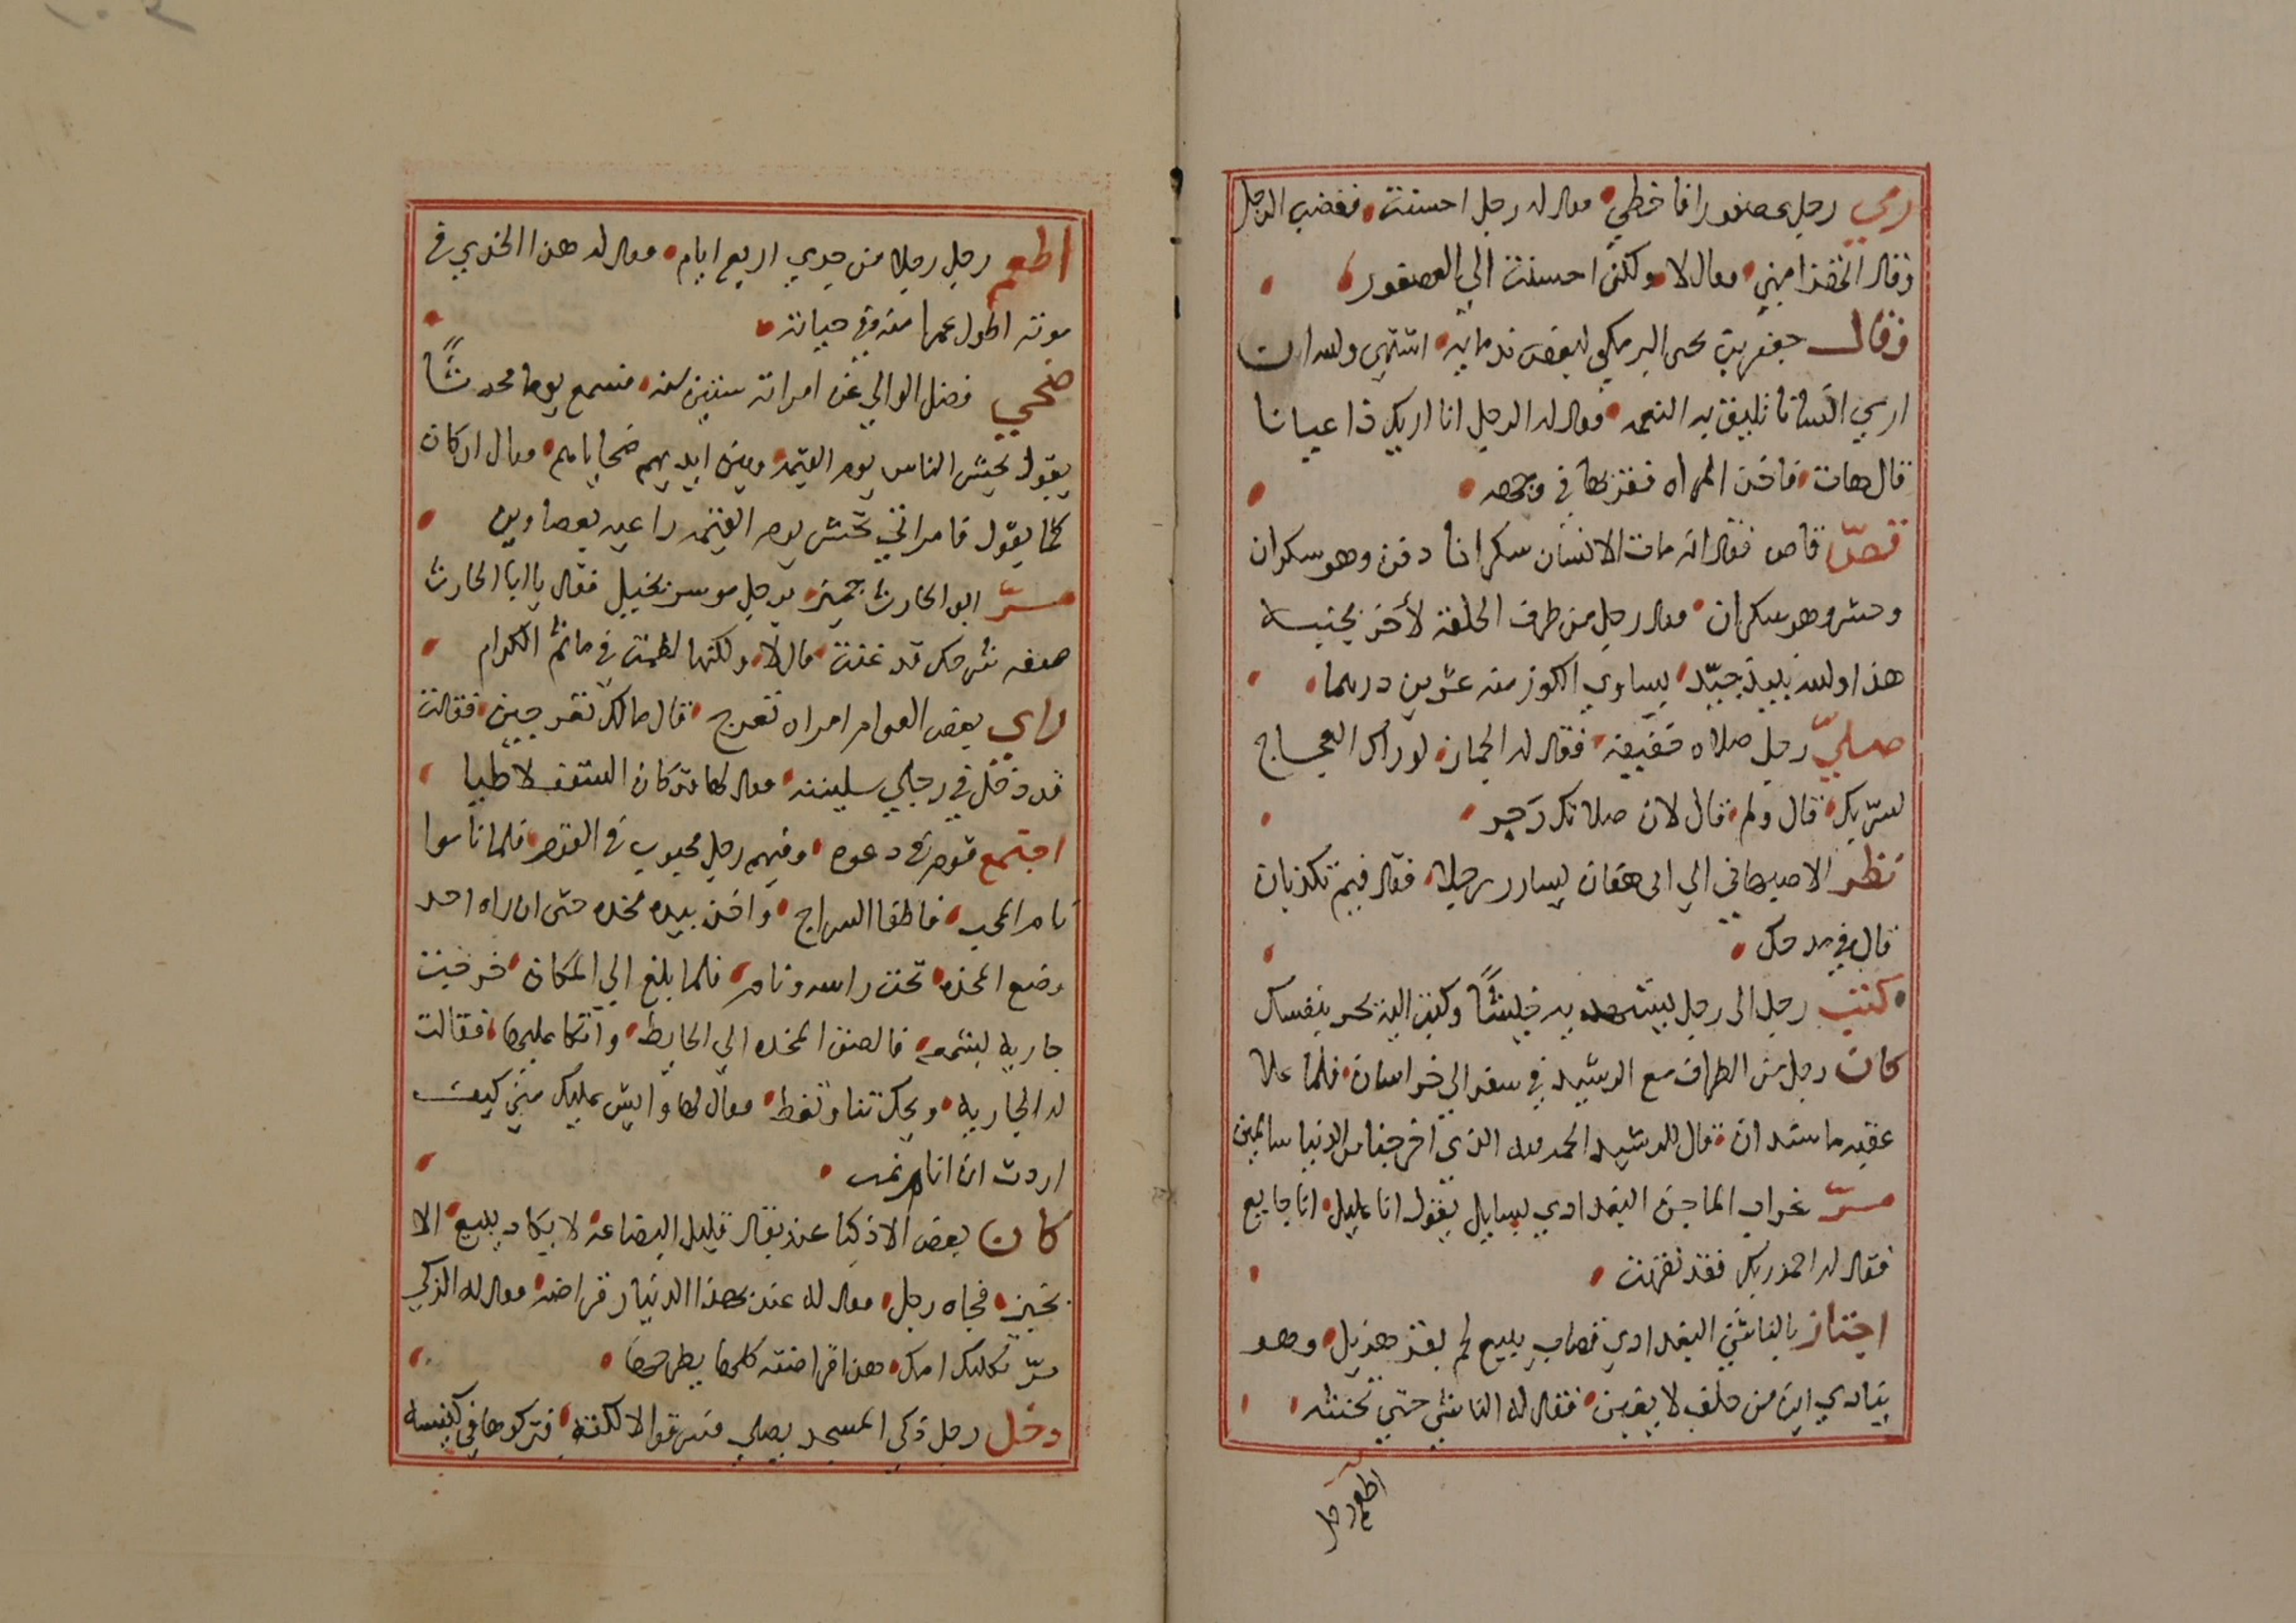 رمي رجل عصفورا فاخطي فقال له رجل احسنت فغضب الرجل
وقال اتهزا مني فقال لا ولكن احسنت الي العصفور
وقال جعفر بن يحيى البرمكي لبعض ندمايه اشتهي والله ان
اري انسانا تليق به النعمه فقال له الرجل انا اريك ذا عيانا
قال هات فاخذ المراه فقربها في وجهه
قصّ قاص فقال اذا مات الانسان سكرانا دفن وهو سكران
وحشر وهو سكران فقال رجل من طرف الحلقه لأخر بجنبه
هذا والله نبيذ جيّد يساوي الكوز منه عشرين درهما
صليّ رجل صلاه خفيفه فقال له الجماز لو راك العجاج
لسرّ بك قال ولم قال لان صلاتك رَجز
نظر الاصبهاني الي ابي هفان يسارر رجلا فقال فيم تكذبان
قال في مدحك
كتب رجل الى رجل
كان رجل من الظراف مع الرشيد في سفر الي خراسان فلما علا
عقبه ماسندان قال للرشيد الحمد لله الذي اخرجنا من الدنيا سالمين
مرّ غراب الماجن البغدادي بسايل يقول انا عليل انا جايع
فقال له احمد ربك فقد نقهت
اجتاز بالناشي البغدادي قصاب يبيع لحم بقر هزيل وهو
ينادي اين من حلف لا يغبن فقال له الناشي حتي تحنثه
اطعم رجل
اطعم رجل رجلا من جدي اربع ايام فقال له هذا الجدي في
موته اطول عمرا منه في حياته
ضحي فضل الوالي عن امراته ستين سنه فسمع يوما محدثًا
يقول يحشر الناس يوم القيمه وبين ايديهم ضحاياهم فقال ان كان
كما يقول فامراتي تحشر يوم القيمه راعيه بعصاوين
مرّ ابو الحارث جمين برجل موسر بخيل فقال يا ابا الحارث
قد غنت قال لا ولكنها لطمت في ماتم الكرام
راي بعض العوام امراه تعرج قال مالك تعرجين فقالت
قد دخل في رجلي سلينه فقال لها قد كان السقف لاطيا
اجتمع قوم في دعوه وفيهم رجل محبوب في القوم فلما ناموا
نام المحب فاطفا السراج واخذ بيده مخده حتى ان راه احد
وضع المخده تحت راسه ونام فلما بلغ الي المكان خرجت
جاريه بشمعه فالصق المخده الي الحايط واتكا عليها فقالت
له الجاريه ويحك تنام وتغط فقال لها وايش عليك مني كيف
اردت ان انام نمت
كان بعض الاذكيا عند بقال قليل البضاعه لا يكاد يبيع الا
بخبز فجاه رجل فقال له عندك بهذا الدينار قراضه فقال له الذكي
مرّ ثكلتك امك هذا قراضته كلها يطرحها
دخل رجل ذكي المسجد يصلي فسرقوا لالكته فتركوها في كنيسه